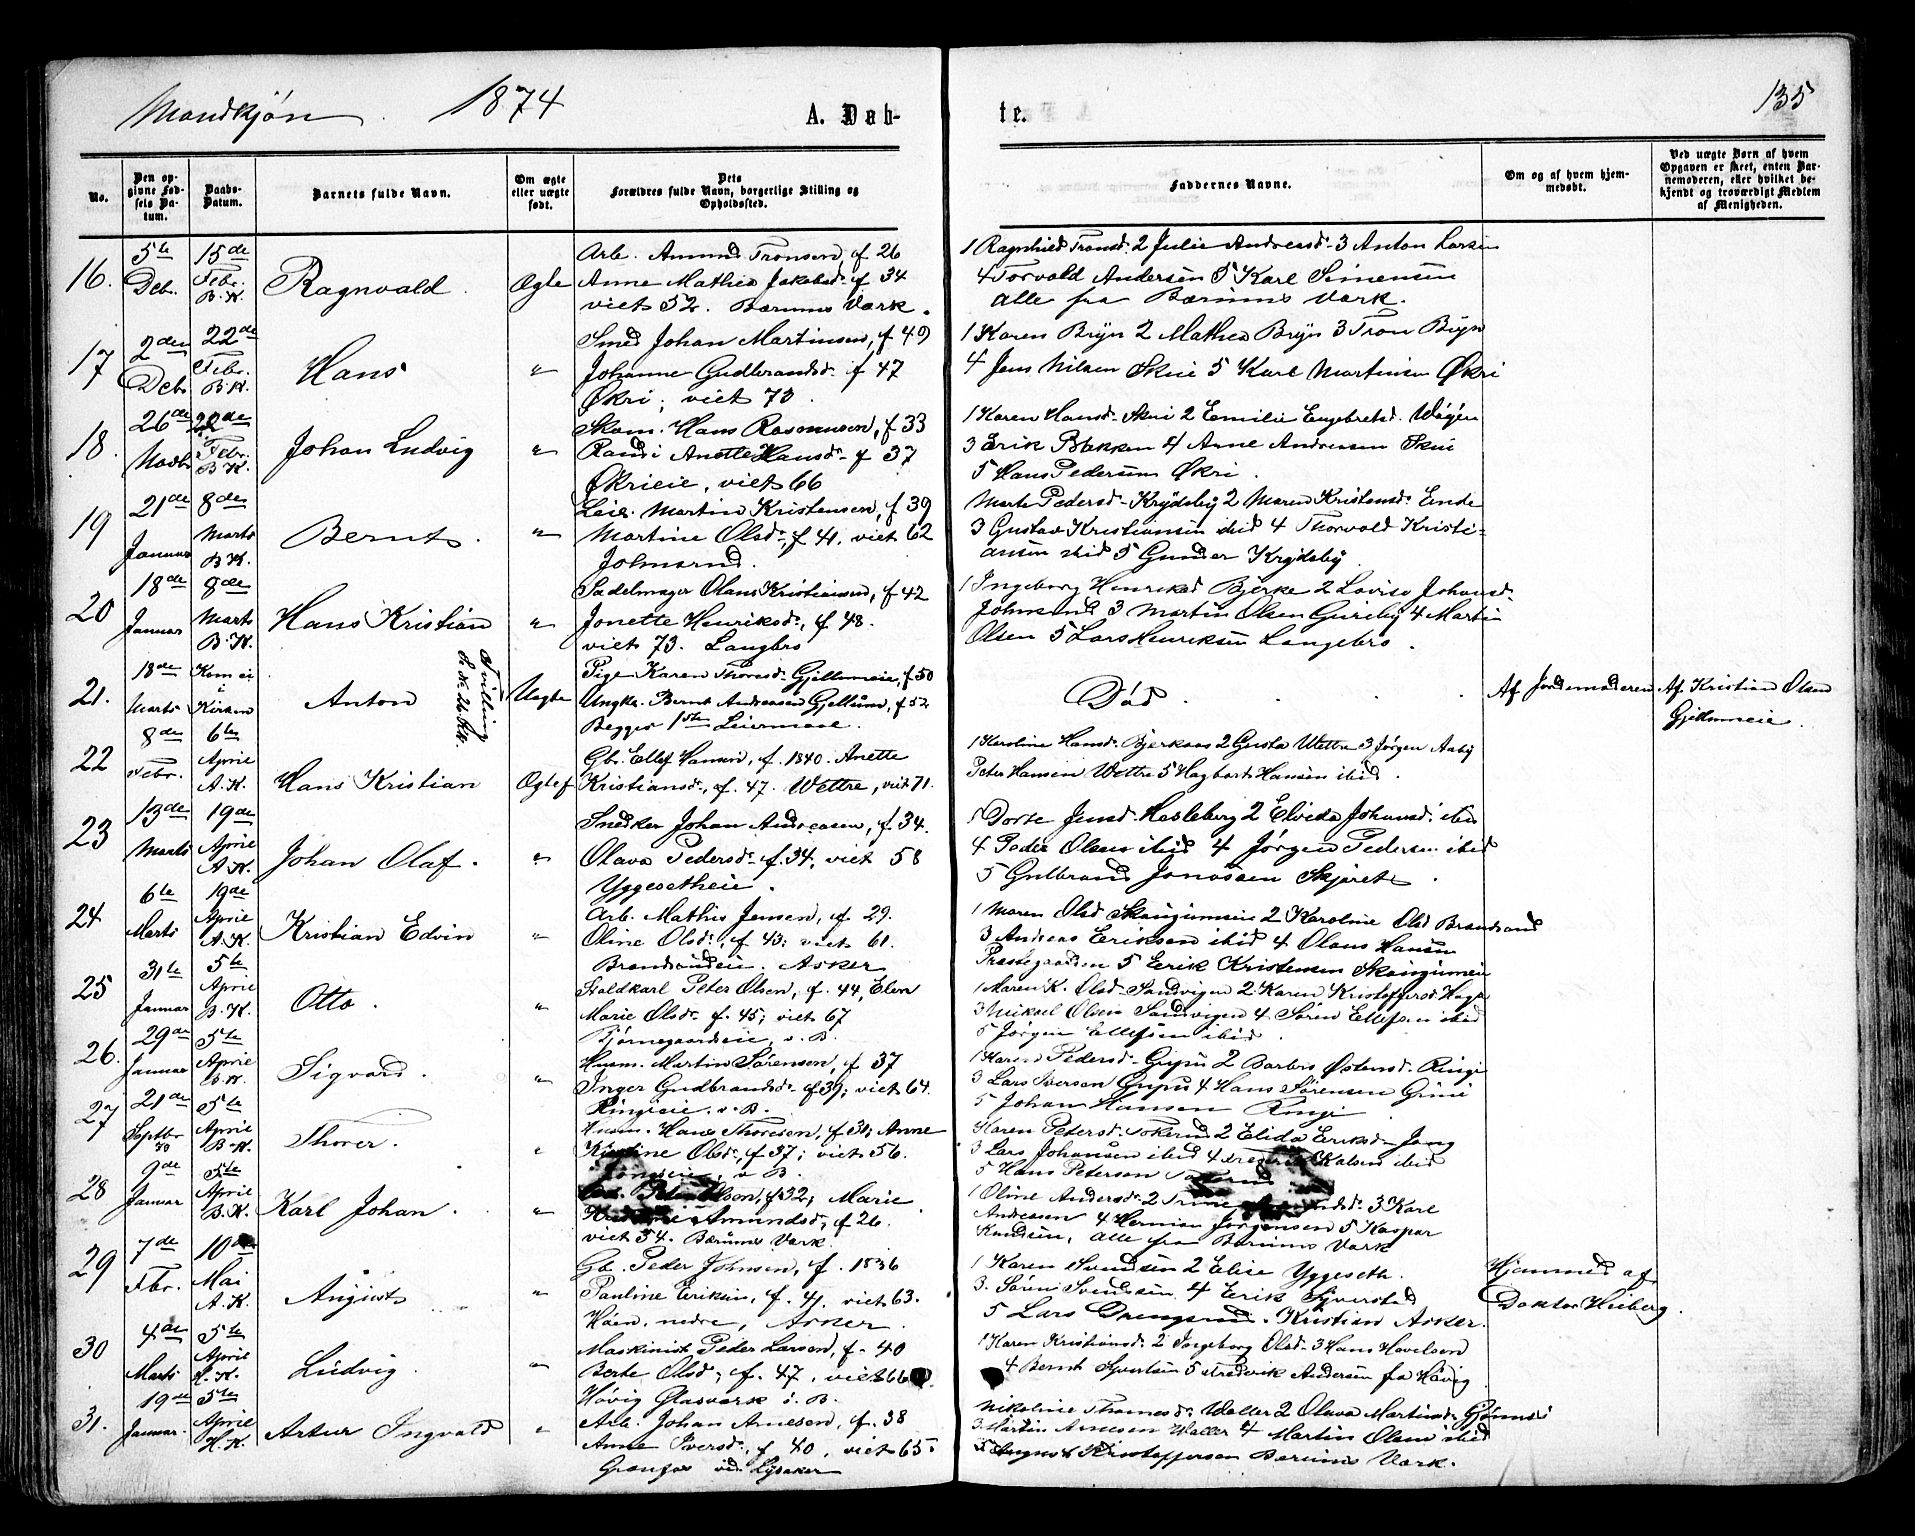 Mandkjøn. 1874 A. Døb- te. 135
No.
Den opgivne Fødsels Datum.
Daabs-Datum.
Barnets fulde Navn.
Om ægte eller uægte født.
Dets Forældres fulde Navn, borgerlige Stilling og Opholdssted.
Faddernes Navne.
Om og af hvem hjemmedøbt.
Ved uægte Børn af hvem Opgaven er skeet, enten Barnemoderen, eller hvilket bekjendt og troværdigt Medlem af Menigheden.
16. 5te Deb. 15de Febr. B.K. Ragnvald. Ægte
Arb. Amund Tronsen, f 26
Anne Mathea Jakobsd. f 34
viet 52. Bærums Værk.
1 Ragnhild Tronsd. 2 Julie Andreasd. 3 Anton Larsen
4 Torvald Andersen 5 Karl Simensen
alle fra Bærums Værk.
17 2den Debr 22de Febr. B.K. Hans "
Smed Johan Martinsen, f 49
Johanne Gudbrandsd. f 47
Økri, viet 73.
1 Karen Bryn 2 Mathea Bryn 3 Tron Bryn
4 Jens Nilsen Skui 5 Karl Martinsen Økri
18. 26de Novbr 22de Febr. B.K. Johan Ludvig "
Skom. Hans Rasmussen, f 33
Randi Anette Hansd. f 37
Økrieie, viet 66
1 Karen Hansd. Skui 2 Emilie Engebretsd. Wøyen
3 Erik Bakken 4 Arne Andresen Skui
5 Hans Pedersen Økri.
19 21de Januar 8de Marts B.K. Bernt. "
Leie. Martin Kristensen, f 39
Martine Olsd., f 41. viet 62
Johnsrud.
Marte Pedersd. Krydsby 2 Maren Kristensd. Ende
3 Gustav Kristiansen ibid 4 Thorvald Kristi-
ansen ibid 5 Gunder Krydsby
20 18de Januar 8de Marts B.K. Hans Kristian "
Sadelmager Olaus Kristiansen, f 42
Jonette Henriksd., f 48.
viet 73. Langbro
1 Ingeborg Henriksd Bjerke 2 Lovise Johansd.
Johnsrud 3 Martin Olsen Guriby 4 Martin
Olsen 5 Lars Henriksen Langebro.
21. 18de Marts Kom ei i Kirken Anton Tvilling Uægte
Pige Karen Thoresd. Gjellumeie, f 50
Ungkr. Bernt Andreasen Gjellum, f 52
Begges 1ste Leiermaal.
Død
Af Jordemoderen
Af Kristian Olsen
Gjellumeie.
22 8de Febr. 6te April A.K. Hans Kristian Ægtef
Gbr. Ellef Hansen, f. 1840. Anette
Kristiansd., f. 47. Wettre, viet 71.
1 Karoline Hansd. Bjerkaas 2 Gusta Wettre 3 Jørgen Aaby
Peter Hansen Wettre 5 Hagbart Hansen ibid.
23 13de Marts 19de April A.K. Johan Olaf. "
Snedker Johan Andreasen, f. 34.
Olava Pedersd. f. 34, viet 58
Yggesetheie.
1 Dorte Jensd. Hesleberg 2 Elveda Johansd. ibid
4 Peder Olsen ibid 4 Jørgen Pedersen ibid
5 Gulbrand Jonassen Skjøret.
24 6te Marts 19de April A.K. Kristian Edvin "
Arb. Mathis Jensen, f 29.
Oline Olsd., f 43; viet 61.
Brendsrudeie. Asker
1 Maren Olsd Skaugumeie 2 Karoline Olsd Brendsrud
3 Andreas Eriksen ibid 4 Olaus Hansen
Præstegaarden 5 Erik Kristensen Skaugumeie
25 31te Januar 5te April B.K. Otto. "
Staldkarl Peter Olsen, f. 44, Elen
Marie Olsd. f. 45; viet 67
Bjørnegaardseie, v. B.
1 Maren K. Olsd. Sandvigen 2 Karen Kristoffersd. Haga
3 Mikael Olsen Sandvigen 4 Søren Ellefsen ibid
5 Jørgen Ellefsen ibid.
26. 29de Januar 5te April B.K. Sigvard. "
Husm. Martin Sørensen, f 37
Inger Gudbrandsd. f 39; viet 64.
Ringieie. v. B.
1 Karen Pedersd. 2 Barbro Østensd. Ringi
3 Lars Iversen 4 Hans Sørensen Grini
5 Johan Hansen Ringi
27 21de Septbr 73 5te April B.K. Thorer. "
Husm. Hans Thoresen, f 30; Anne
Kirstine Olsd., f 37; viet 56.
v B.
Karen Pedersd. 2 Elida Eriksd. Jong
3 Lars Johansen ibid 4 ibid
5 Hans Petersen
28 9de Januar 5te April B.K. Karl Johan. "
f 32, Marie
Amundsd., f 26.
viet 54. Bærums Værk
1 Oline Andersd. 2 Trine 3 Karl
Andreasen 4 Herman Jørgensen 5 Kaspar
Knudsen, alle fra Bærums Værk
29 7de Fbr. 10de Mai A.K. August "
Gb. Peder Johnsen, f. 1836
Pauline Eriksen, f. 41. viet 63.
Høen, nedre, Asker.
1 Karen Svendsen 2 Elise Yggeseth.
3. Søren Svendsen 4 Erik Syverstad
5 Lars Drengsrud. Kristian Asker.
Hjemmed. af
Doktor Heiberg.
30 4de Marts 5te April H.K. Ludvig. "
Maskinist Peder Larsen, f. 40
Berte Olsd., f. 47, viet 66
Høvig Glasværk i B.
1 Karen Kristiansd. 2 Ingeborg Olsd. 3 Hans Havelsen
4 Bernt Syvertsen 5 Fredrik Andersen fra Høvig
31. 19de Januar. 5te April H.K. Artur Ingvald "
Arb. Johan Arnesen, f. 38
Anne Iversd., f 40, viet 65.
Granfos ved Lysaker
Nikoline Thomesd. Waller 2 Olava Martinsd. Gjønnes
3. Martin Arnesen Waller 4 Martin Olsen ibid
5 August Kristoffersen Bærums Værk.